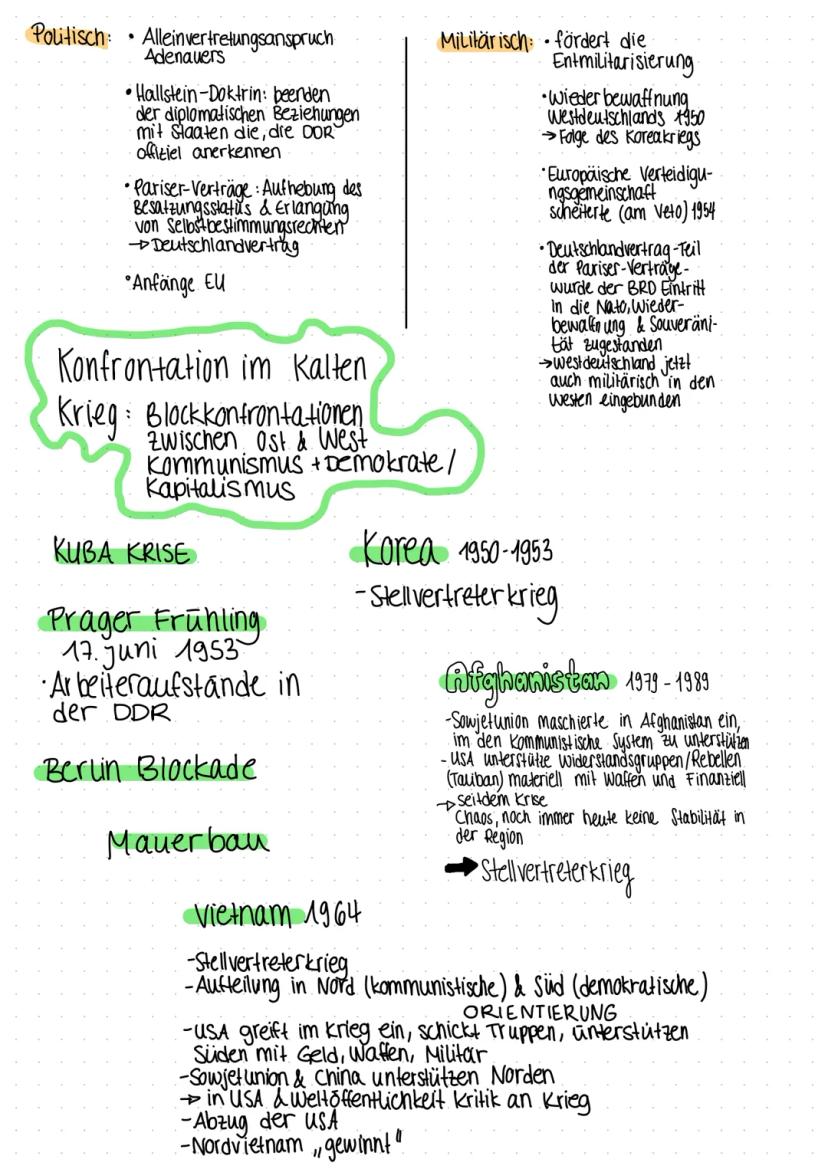 Politisch: • Alleinvertretungsanspruch
Adenauers
• Hallstein-Doktrin: beenden
der diplomatischen Beziehungen
mit Staaten die, die DDR
offiziel anerkennen
• Pariser-Verträge: Aufhebung des
Besatzungsstatus & Erlangung
von Selbstbestimmungsrechten
→ Deutschlandvertrag
• Anfänge EU
Militärisch: • fördert die
Entmilitarisierung
• Wiederbewaffnung
Westdeutschlands 1950
→ Folge des Koreakriegs
• Europäische Verteidigu-
ngsgemeinschaft
scheiterte (am Veto) 1954
• Deutschlandvertrag - Teil
der Pariser-Verträge -
wurde der BRD Eintritt
in die Nato, Wieder-
bewaffnung & Souveräni-
tät zugestanden
→ Westdeutschland jetzt
auch militärisch in den
Westen eingebunden
Konfrontation im Kalten
Krieg: Blockkonfrontationen
zwischen Ost & West
Kommunismus + Demokrate /
Kapitalismus
KUBA KRISE
Korea 1950-1953
- Stellvertreterkrieg
Prager Frühling
17. Juni 1953
• Arbeiteraufstände in
der DDR
Afghanistan 1979-1989
- Sowjetunion maschierte in Afghanistan ein,
im den Kommunistische System zu unterstützen
- USA unterstütze Widerstandsgruppen/Rebellen
(Tauiban) materiell mit Waffen und Finanziell
→ seitdem Krise
Chaos, noch immer heute keine Stabilität in
der Region
→ Stellvertreterkrieg
Berlin Blockade
Mauerbau
Vietnam 1964
- Stellvertreterkrieg
- Aufteilung in Nord (kommunistische) & Süd (demokratische)
ORIENTIERUNG
- USA greift im Krieg ein, schickt Truppen, unterstützen
Süden mit Geld, Waffen, Militär
- Sowjetunion & China unterstützen Norden
→ in USA & Weltöffentlichkeit Kritik an Krieg
- Abzug der USA
- Nordvietnam „gewinnt"